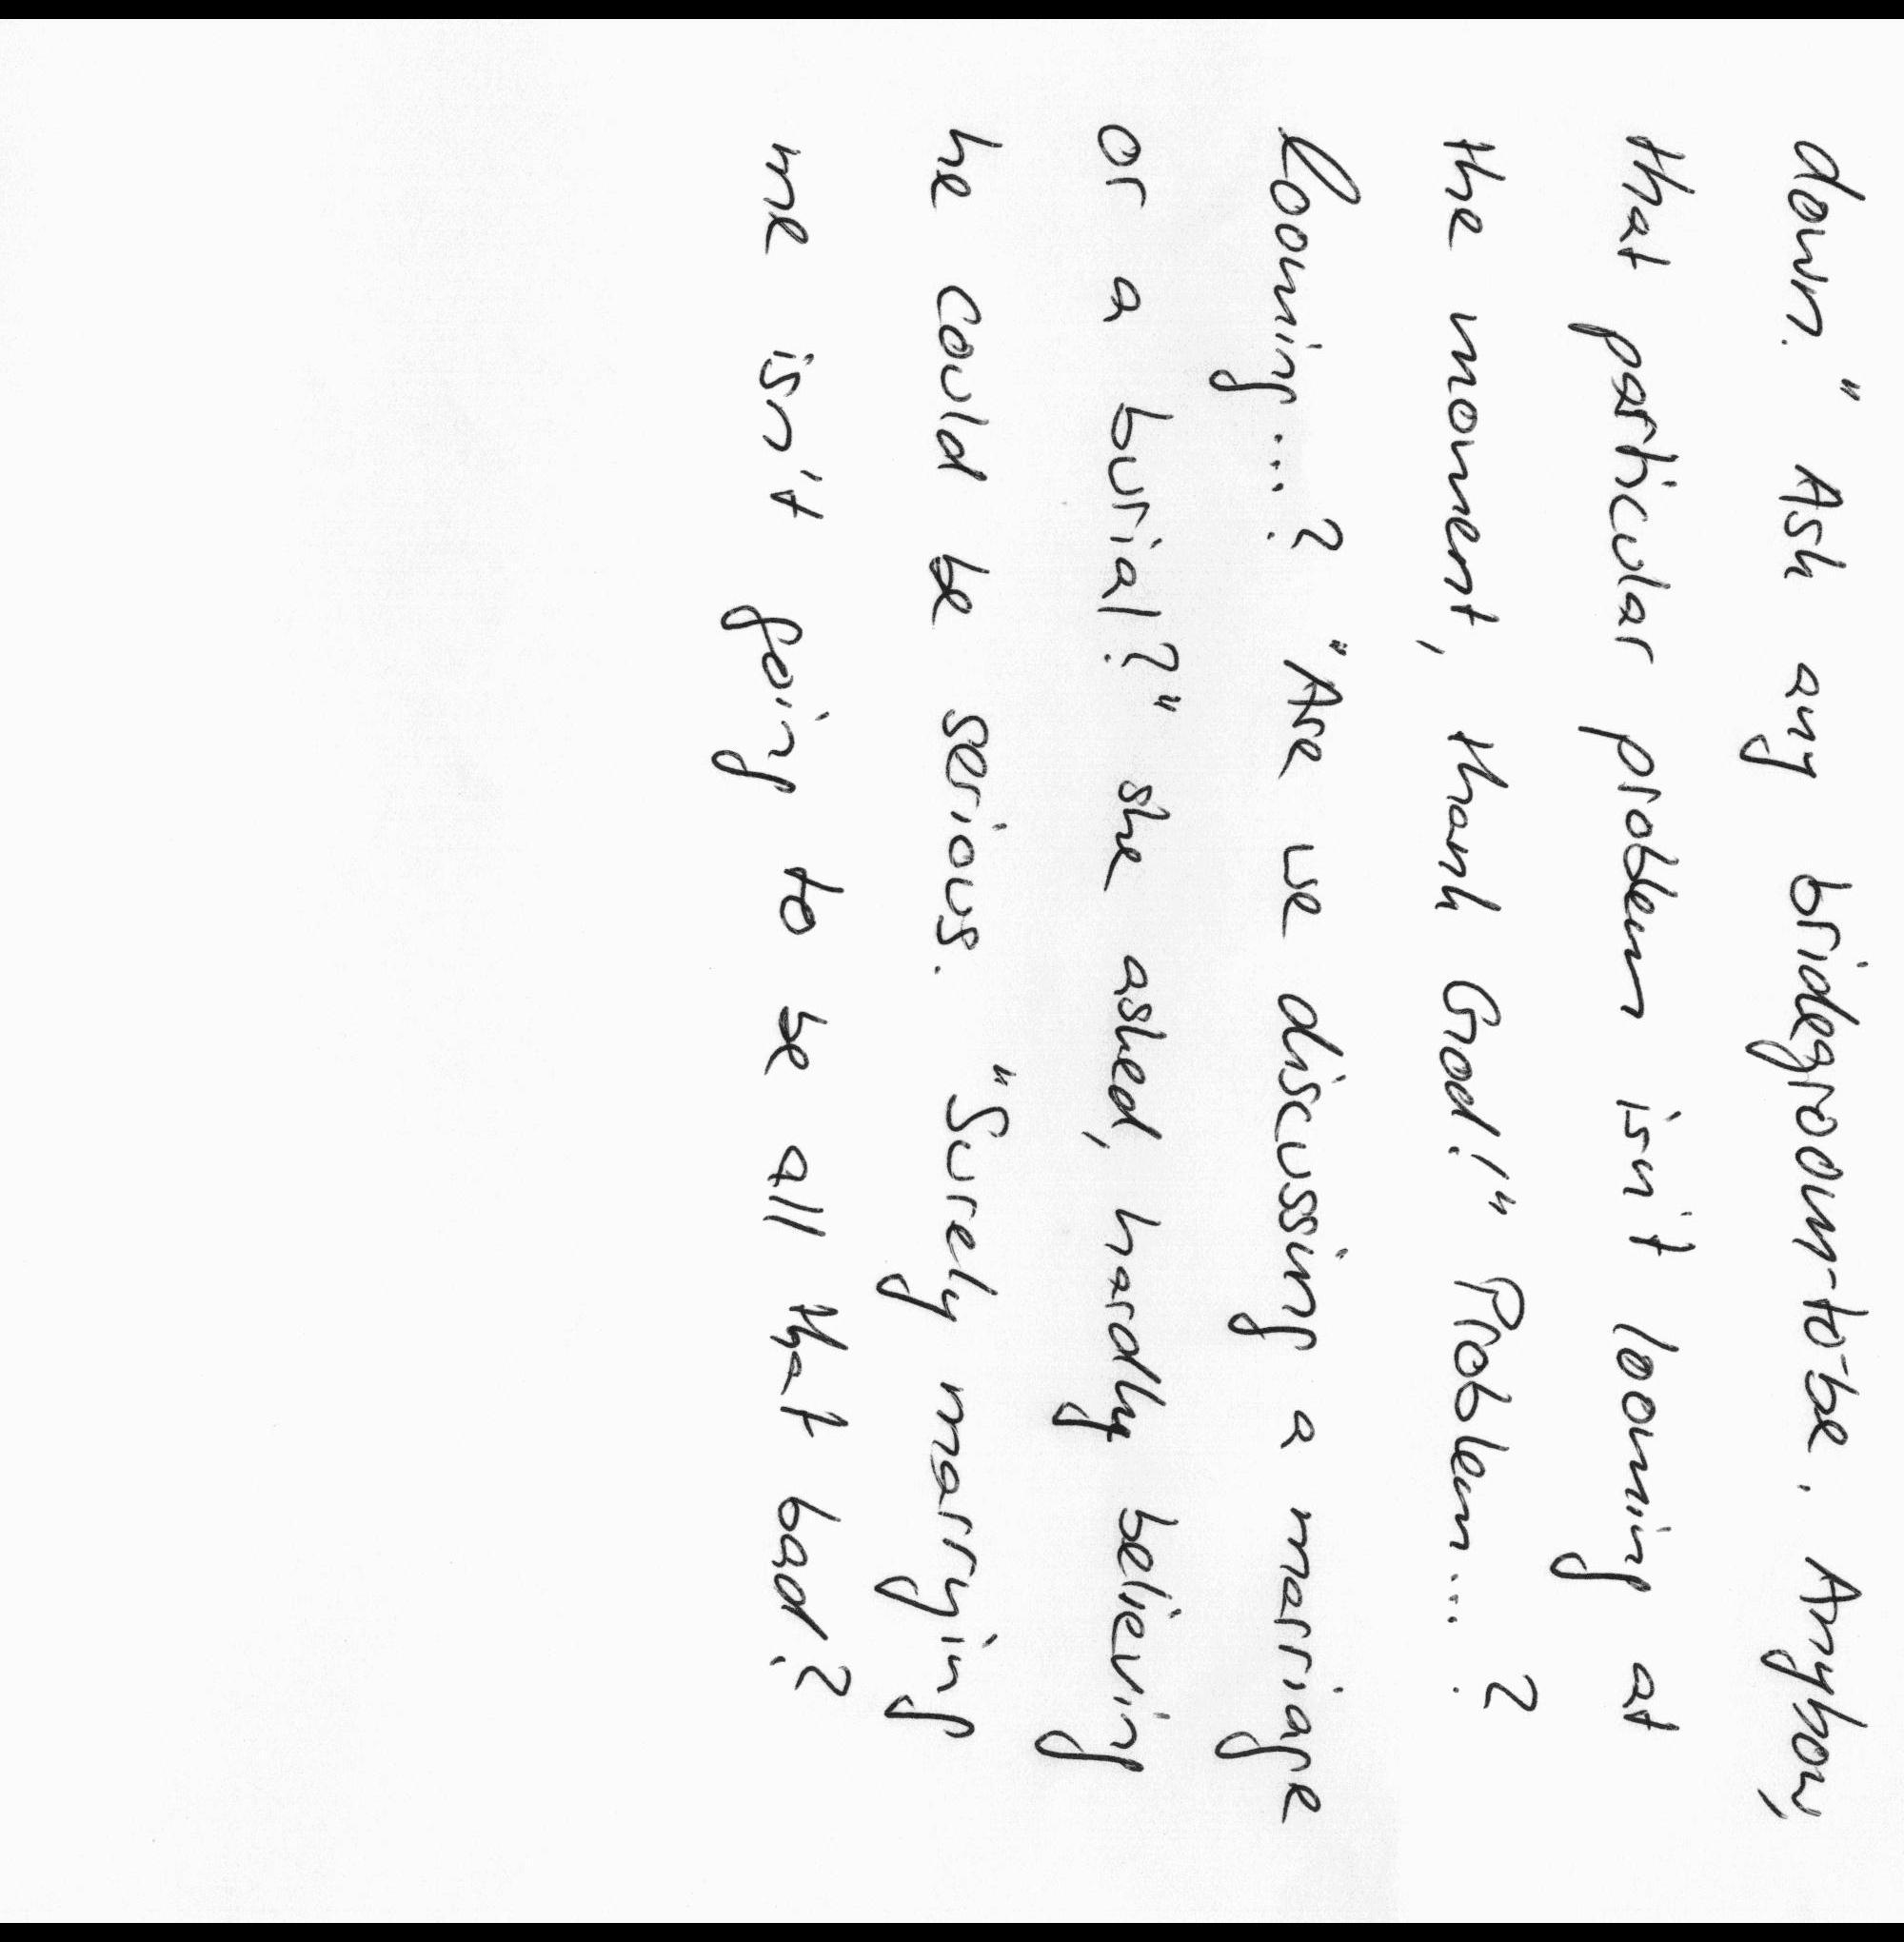 down. "Ask any bridegroom-to-be. Anyhow,
that particular problem isn't looming at
the moment, thank God!" Problem...?
Looming...? "Are we discussing a marriage
or a burial?" she asked, hardly believing
he could be serious. "Surely marrying
me isn't going to be all that bad?